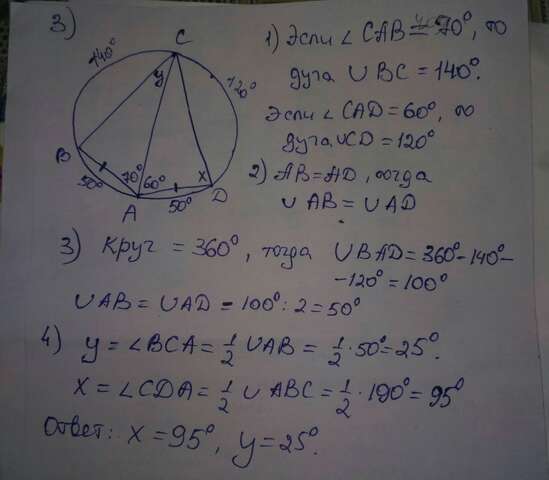 3)
C
140°
y
120°
B
70°
60°
x
50°
50°
D
A
1) Если ∠ CAB = 70°, то
дуга ∪ BC = 140°.
Если ∠ CAD = 60°, то
дуга ∪CD = 120°
2) AB = AD, тогда
∪ AB = ∪ AD
3) Круг = 360°, тогда ∪ BAD = 360° - 140° -
- 120° = 100°
∪ AB = ∪ AD = 100° : 2 = 50°
4) y = ∠BCA = 1/2 ∪ AB = 1/2 · 50° = 25°.
x = ∠CDA = 1/2 ∪ ABC = 1/2 · 190° = 95°
Ответ: x = 95°, y = 25°.